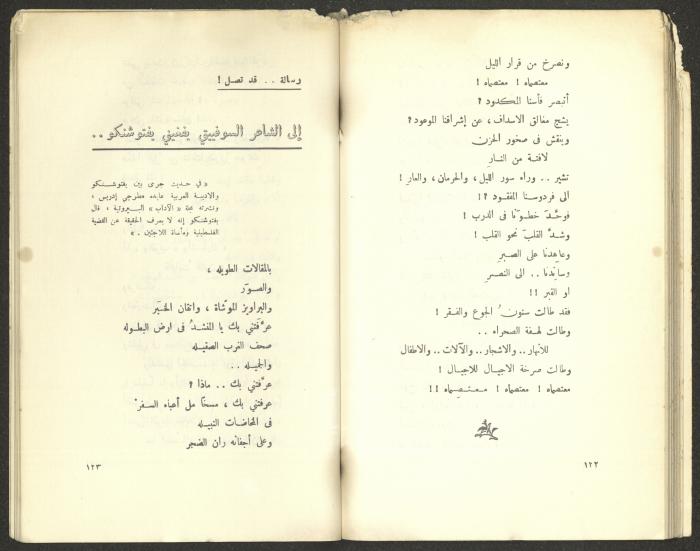 ونصرخ من قرار الليل
معتصماه ! معتصماه !
أتبصر فأسنا المكدود ؟
يشج مغالق الاسداف ، عن إشراقنا الموعود ؟
وينقش فى صخور الحزن
لافتة من النار
تشير .. وراء سور الليل ، والحرمان ، والعار !
الى فردوسنا المفقود ؟!
فوحّد خطونا فى الدرب !
وشدّ القلب نحو القلب !
وعاهدنا على الصبر
وساندنا .. الى النصر
او القبر !!
فقد طالت سنون الجوع والفقر !
وطالت لهفة الصحراء ..
للأنهار .. والاشجار .. والآلات .. والاطفال
وطالت صرخة الاجيال للاجيال !
معتصماه ! معتصماه ! معتصماه !!
١٢٢
رسالة .. قد تصل !
إلى الشاعر السوفييتي يفغيني يفتوشنكو ..
« في حديث جرى بين يفتوشنكو
والاديبة العربية عايده مطرجي إدريس ،
ونشرته مجلة « الآداب » البيروتية ، قال
يفتوشنكو إنه لا يعرف الحقيقة عن القضية
الفلسطينية ومأساة اللاجئين . »
بالمقالات الطويله ،
والصوّر
والبراويز الموشّاة ، واتقان الخبر
عرّفتني بك يا المنشد فى ارض البطوله
صحف الغرب الصقيله
والجميله ..
عرّفتني بك .. ماذا ؟
عرفتني بك ، مسخًا مل أعباء السفر
فى المحاضات النبيله
وعلى أجفانه ران الضجر
١٢٣